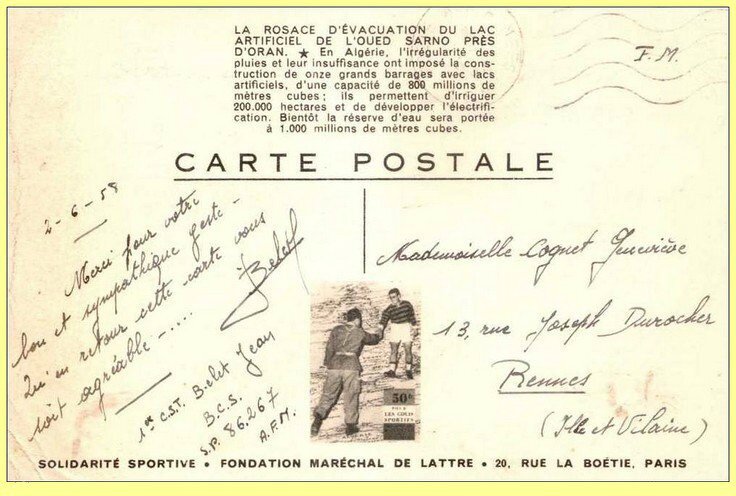 LA ROSACE D'ÉVACUATION DU LAC
ARTIFICIEL DE L'OUED SARNO PRÈS
D'ORAN. ★ En Algérie, l'irrégularité des
pluies et leur insuffisance ont imposé la cons-
truction de onze grands barrages avec lacs
artificiels, d'une capacité de 800 millions de
mètres cubes; ils permettent d'irriguer
200.000 hectares et de développer l'électrifi-
cation. Bientôt la réserve d'eau sera portée
à 1.000 millions de mètres cubes.
F.M.
CARTE POSTALE
2-6-58
Merci pour votre
bon et sympathique geste -
Qu'en retour cette carte vous
soit agréable - .....
Belet
1er C.S.T. Belet Jean
B.C.S.
S.P. 86.267
A.F.N.
Mademoiselle Cognet Geneviève
13, rue Joseph Durocher
Rennes
(Ille et Vilaine)
50F
POUR
LES COLIS
SPORTIFS
SOLIDARITÉ SPORTIVE • FONDATION MARÉCHAL DE LATTRE • 20, RUE LA BOÉTIE, PARIS